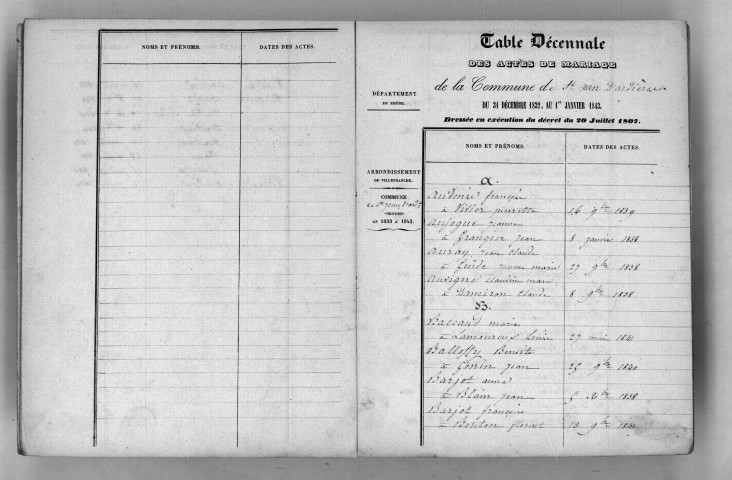 NOMS ET PRÉNOMS.
DATES DES ACTES.
Table Décennale
DES ACTES DE MARIAGE
de la Commune de St jean Dardières
DU 31 DÉCEMBRE 1832, AU 1er JANVIER 1843.
Dressée en exécution du décret du 20 Juillet 1807.
DÉPARTEMENT
DU RHÔNE.
ARRONDISSEMENT
DE VILLEFRANCHE.
COMMUNE
de St jean
AN 1833 A 1843.
NOMS ET PRÉNOMS.
DATES DES ACTES.
A.
françois
à pierrette 26 9bre 1839
Aujogue jeanne
à Grangier jean 8 janvier 1838
Auray jean claude
à jeanne marie 27 9bre 1838
Auvigne claudine marie
à Damiron claude 8 9bre 1838
B.
Baccaud marie
à Lamoureux 27 mai 1841
Balloffy Benoite
à Gonin jean 25 9bre 1840
Barjot anne
à Blain jean 5 Xbre 1838
Barjot françoise
à 13 9bre